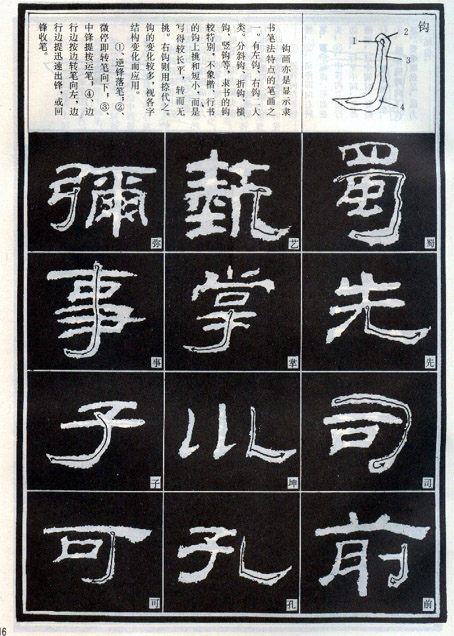 钩
1
2
3
4
钩画亦是显示隶
书笔法特点的笔画之
一。有左钩、右钩二大
类。分斜钩、折钩、横
钩、竖钩等，隶书的钩
较特别，不象楷、行书
的钩上挑和短小，而是
写得较长平，转而无
挑。右钩则用捺代之。
钩的变化较多，视各字
结构变化而应用。
①、逆锋落笔；②、
微停即转笔向下；③、
中锋提按运笔；④、边
行边按边转笔向左，边
行边提迅速出锋，或回
锋收笔。
蜀
蜀
先
先
司
司
前
前
艺
掌
掌
坤
孔
孔
彌
弥
事
事
子
子
可
可
16